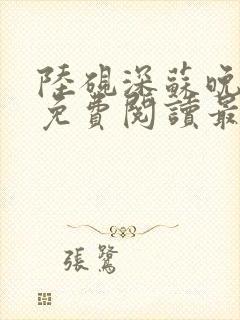 陸硯深蘇晚
免費閱讀最
張鷺